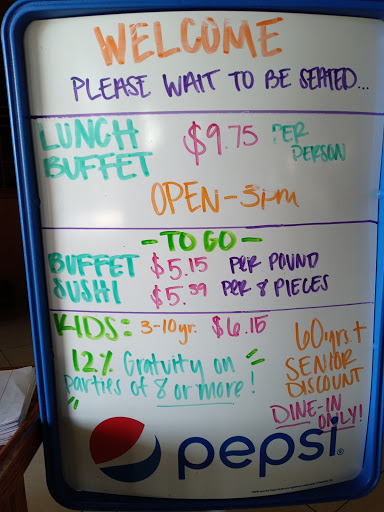 WELCOME
PLEASE WAIT TO BE SEATED...
LUNCH BUFFET $9.75 PER PERSON
OPEN-3pm
- TO GO -
BUFFET $5.15 PER POUND
SUSHI $5.59 PER 8 PIECES
KIDS: 3-10yr. $6.15
12% Gratuity on
parties of 8 or more!
60yrs +
SENIOR
DISCOUNT
DINE-IN
ONLY!
pepsi